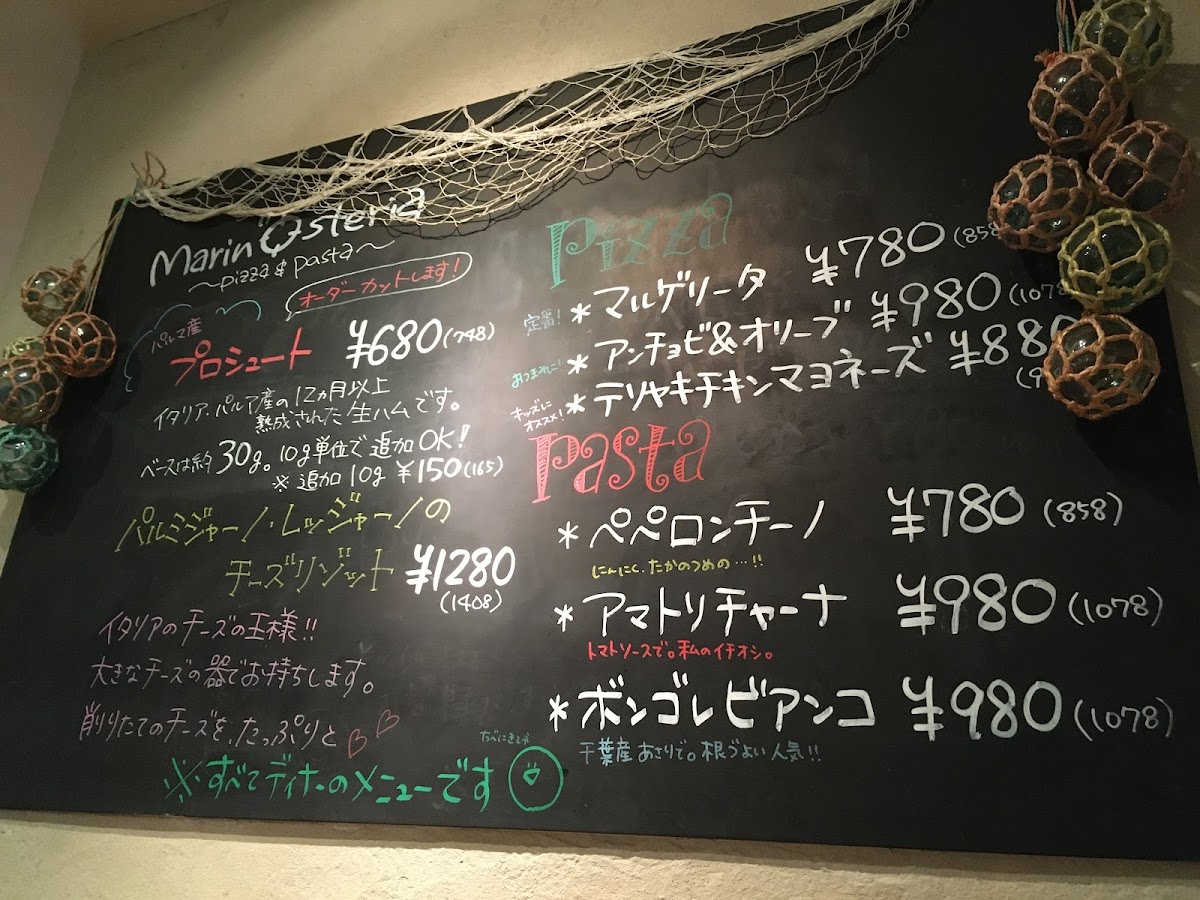 Marin Osteria
～pizza & pasta～
オーダーカットします!
パルマ産
プロシュート ¥680(748)
イタリア・パルマ産の12ヵ月以上
熟成された生ハムです。
ベースは約30g。10g単位で追加OK!
※追加10g ¥150(165)
パルミジャーノ・レッジャーノの
チーズリゾット ¥1280
(1408)
イタリアのチーズの王様!!
大きなチーズの器でお持ちします。
削りたてのチーズを、たっぷりと
※すべてディナーのメニューです
たべにきてネ
Pizza
定番! *マルゲリータ ¥780(858
おつまみに! *アンチョビ&オリーブ ¥980(1078
キッズに
オススメ! *テリヤキチキンマヨネーズ ¥880
Pasta
*ペペロンチーノ ¥780(858)
にんにく、たかのつめの…!!
*アマトリチャーナ ¥980(1078)
トマトソースで。私のイチオシ。
*ボンゴレビアンコ ¥980(1078)
千葉産あさりで。根づよい人気!!